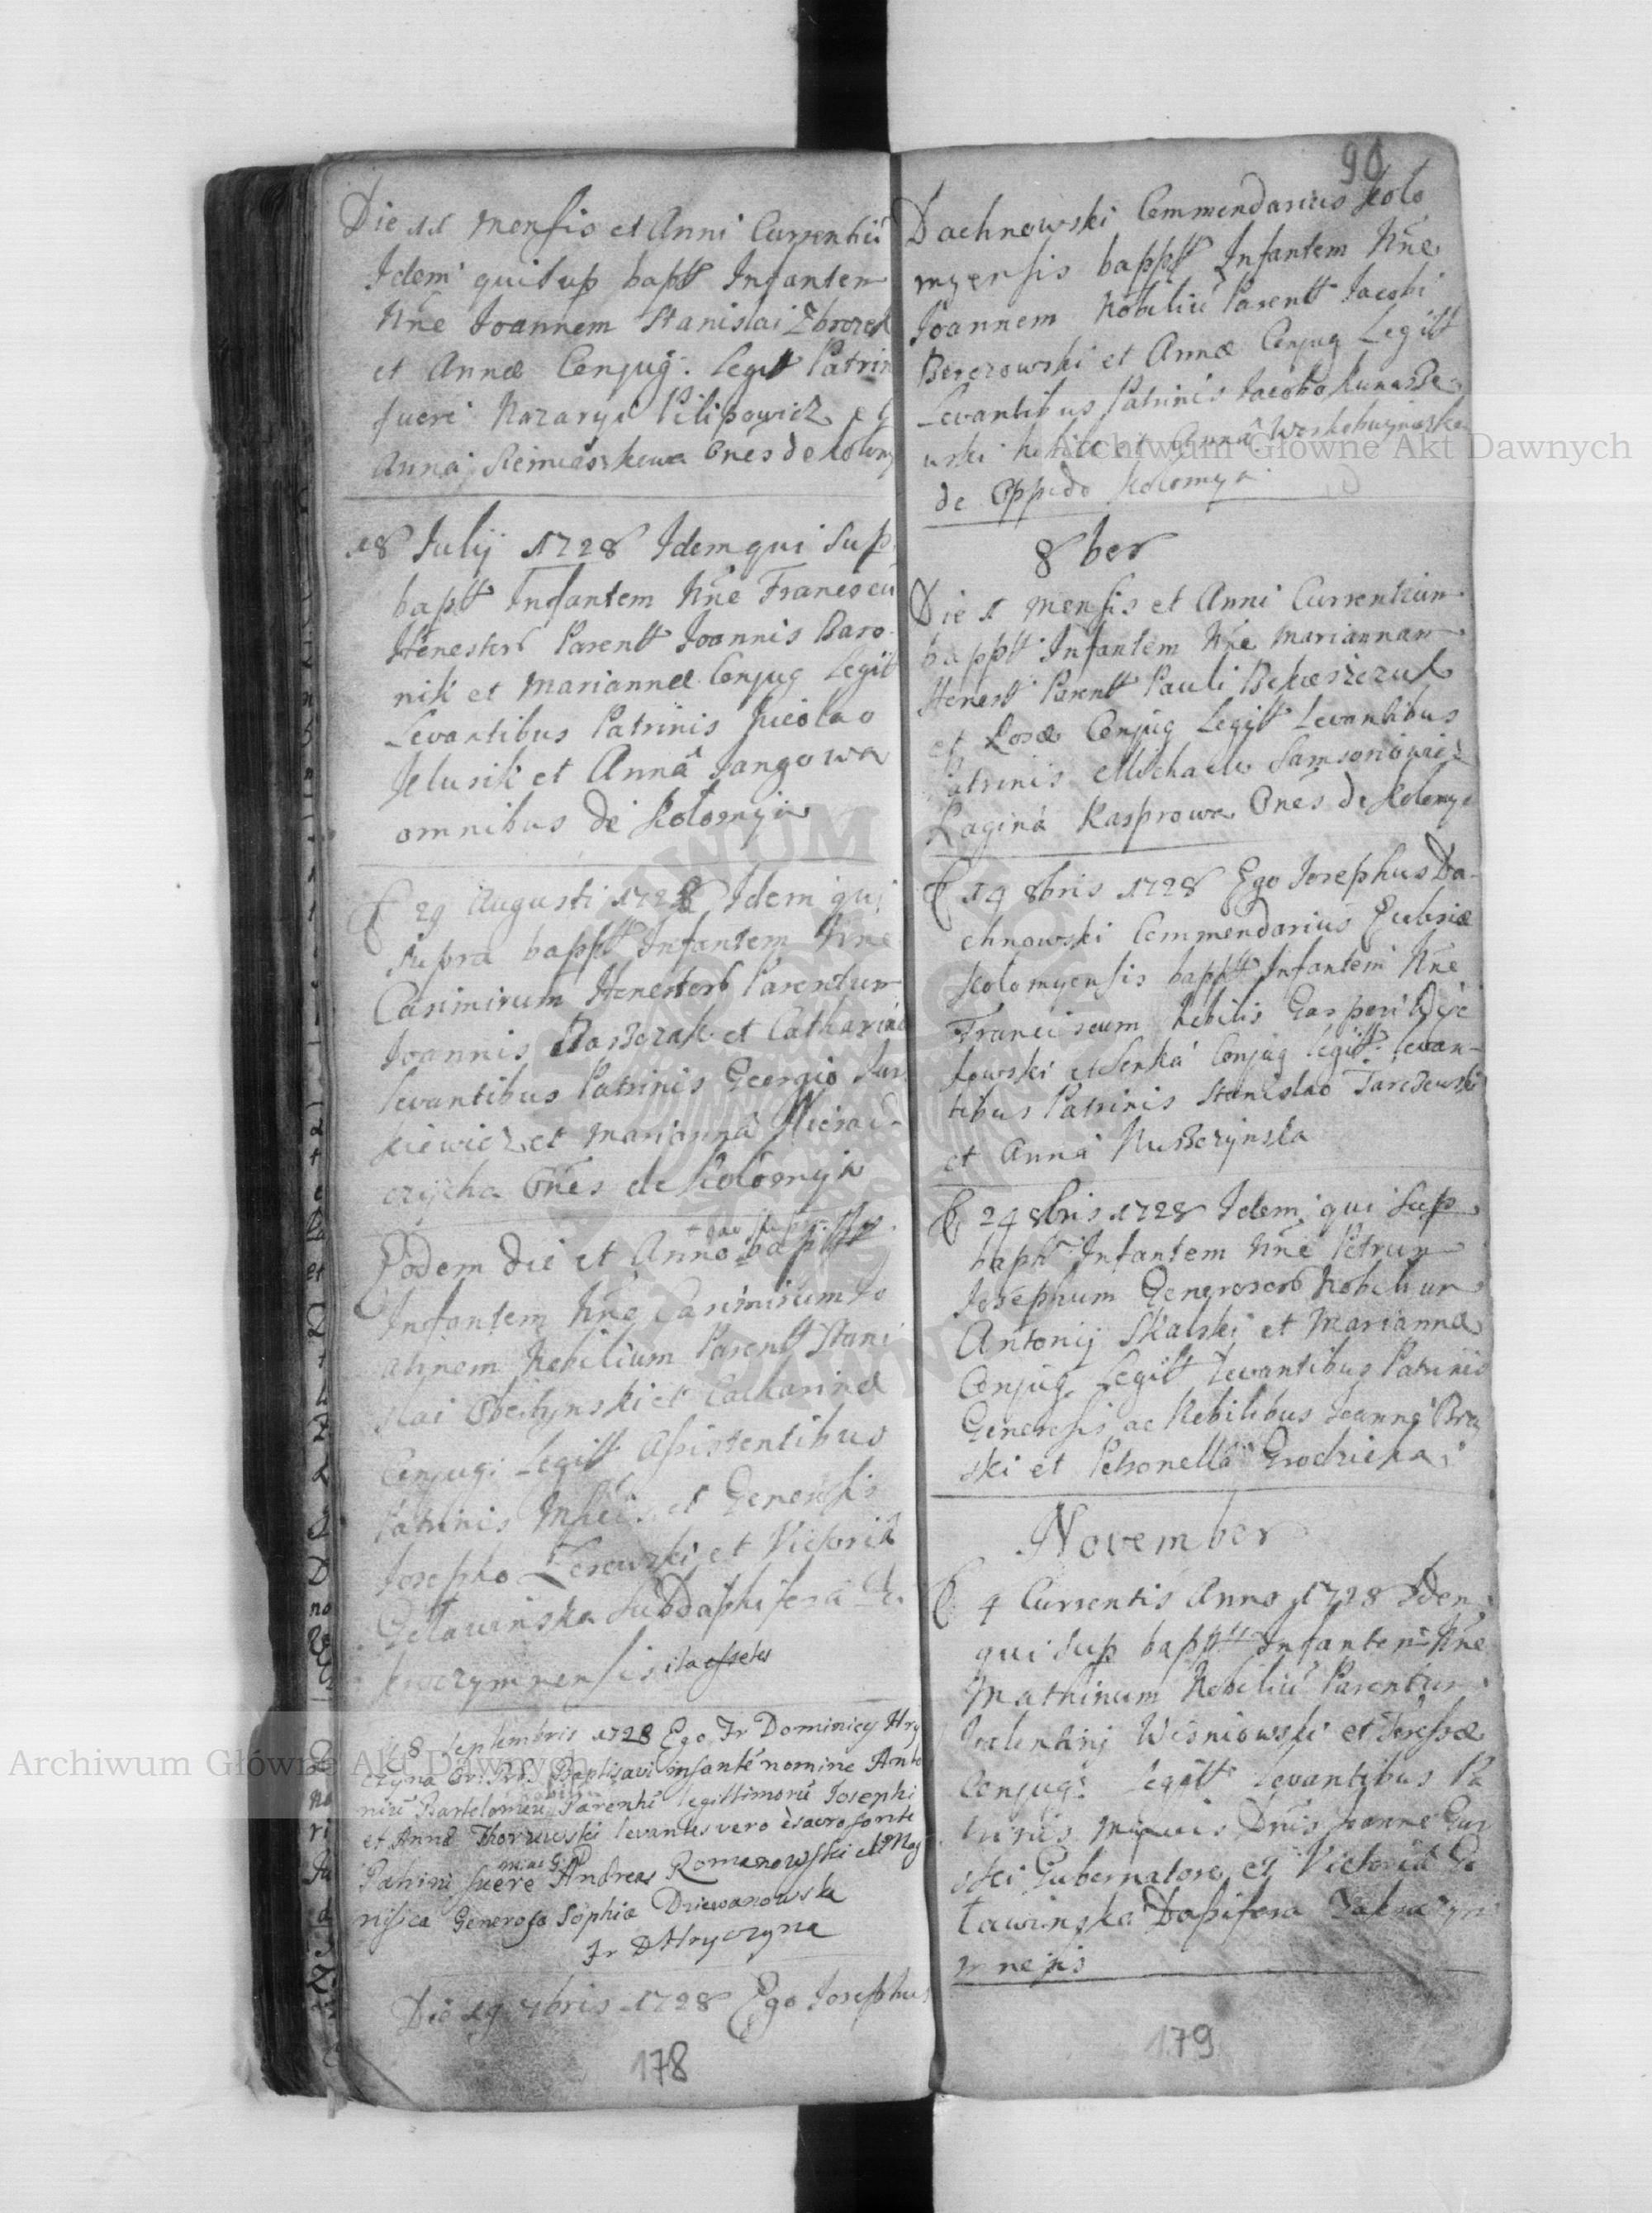 Die 11 Mensis et Anni Currentiũ
Idem qui sup bapt Infantem
Nn̄e Joannem Stanislai Zbrozek
et Annæ Conjug. Legitt Patrin
fueri Nazaryi Pilipowicz et
Anna Siemiaszkowa Oñes de Kolomy
18 Julij 1728 Idem qui Sup
bapt Infantem Nn̄e Franciscũ
Honestor Parentt Joannis Baro
nik et Mariannæ Conjug Legit
Levantibus Patrinis Nicolao
et Annâ Jangowa
omnibus de Kolomyia
29 Augusti 1728 Idem qui
supra bappt Infantem Nn̄e
Casimirum Honestor Parentum
Joannis et Catharinæ
levantibus Patrinis Georgio Jur
kiewicz et Mariannâ
czycha Oñes de Kolomyia
+ qui supra
Eodem die et Anno bappt
Infantem Nn̄e Casimirum Jo
achnem Nobilium Parentt Stani
slai Obertynski et Catharinæ
Conjug. Legitt Assistentibus
Patrinis Mfci et Generosis
Josepho et Victoriâ
Golawinska Subdapifera
Die 8 Septembris 1728 Ego Fr Dominicg Hry
czyna Or: Præ: Baptisavi infantẽ nomine Anto
niũ Bartolomeũ Parentũ legittimorũ Josephi
et Annæ Thorzewski levantes vero è sacro fonte
Patrini fuere Andreas Romanowski et Mag
nifica Generosa Sophia Drzewanowska
Fr D Hryczyna
Die 19 7bris 1728 Ego Josephus
178
90
Dachnowski Commendarius Kolo
myensis bappt Infantem Nn̄e
Joannem Nobiliũ Parentt Jacobi
Berezowski et Annæ Conjug Legitt
Levantibus Patrinis Jacobo Kunasze
wski Nobile et Anna
de Oppido Kolomya
8ber
Die 1 Mensis et Anni Currentium
bappt Infantem Nn̄e Mariannam
Honest Parentt Pauli
et Rosæ Conjug Legitt Levantibus
Patrinis Michaele Samsonowicz
Raginâ Kasprowa Oñes de Kolomya
14 8bris 1728 Ego Josephus Da-
chnowski Commendarius
Kolomyensis bappt Infantem Nn̄e
Franciscum Nobilis Gasperi
kowski et Conjug legitt. levan-
tibus Patrinis Stanislao
et Annâ Kuszczynska
24 8bris 1728 Idem qui Sup
bapt Infantem Nn̄e Petrum
Josephum Generosor Nobilium
Antonij Skalski et Mariannæ
Conjug Legitt Levantibus Patrinis
Generosis ac Nobilibus Joanne
ski et Petronellâ Grodzicka
November
4 Currentis Anno 1728 Idem
qui sup bappt Infantem Nn̄e
Mathinum Nobiliũ Parentum
Valentinj Wisniowski et Teressæ
Conjug. Legitt Levantibus Pa
trinis Dnis Joanne Gur
ski Gubernatore et Victoriâ Go
lawinska Dapifera
mnesis
179
Archiwum Główne Akt Dawnych
Archiwum Główne Akt Dawnych